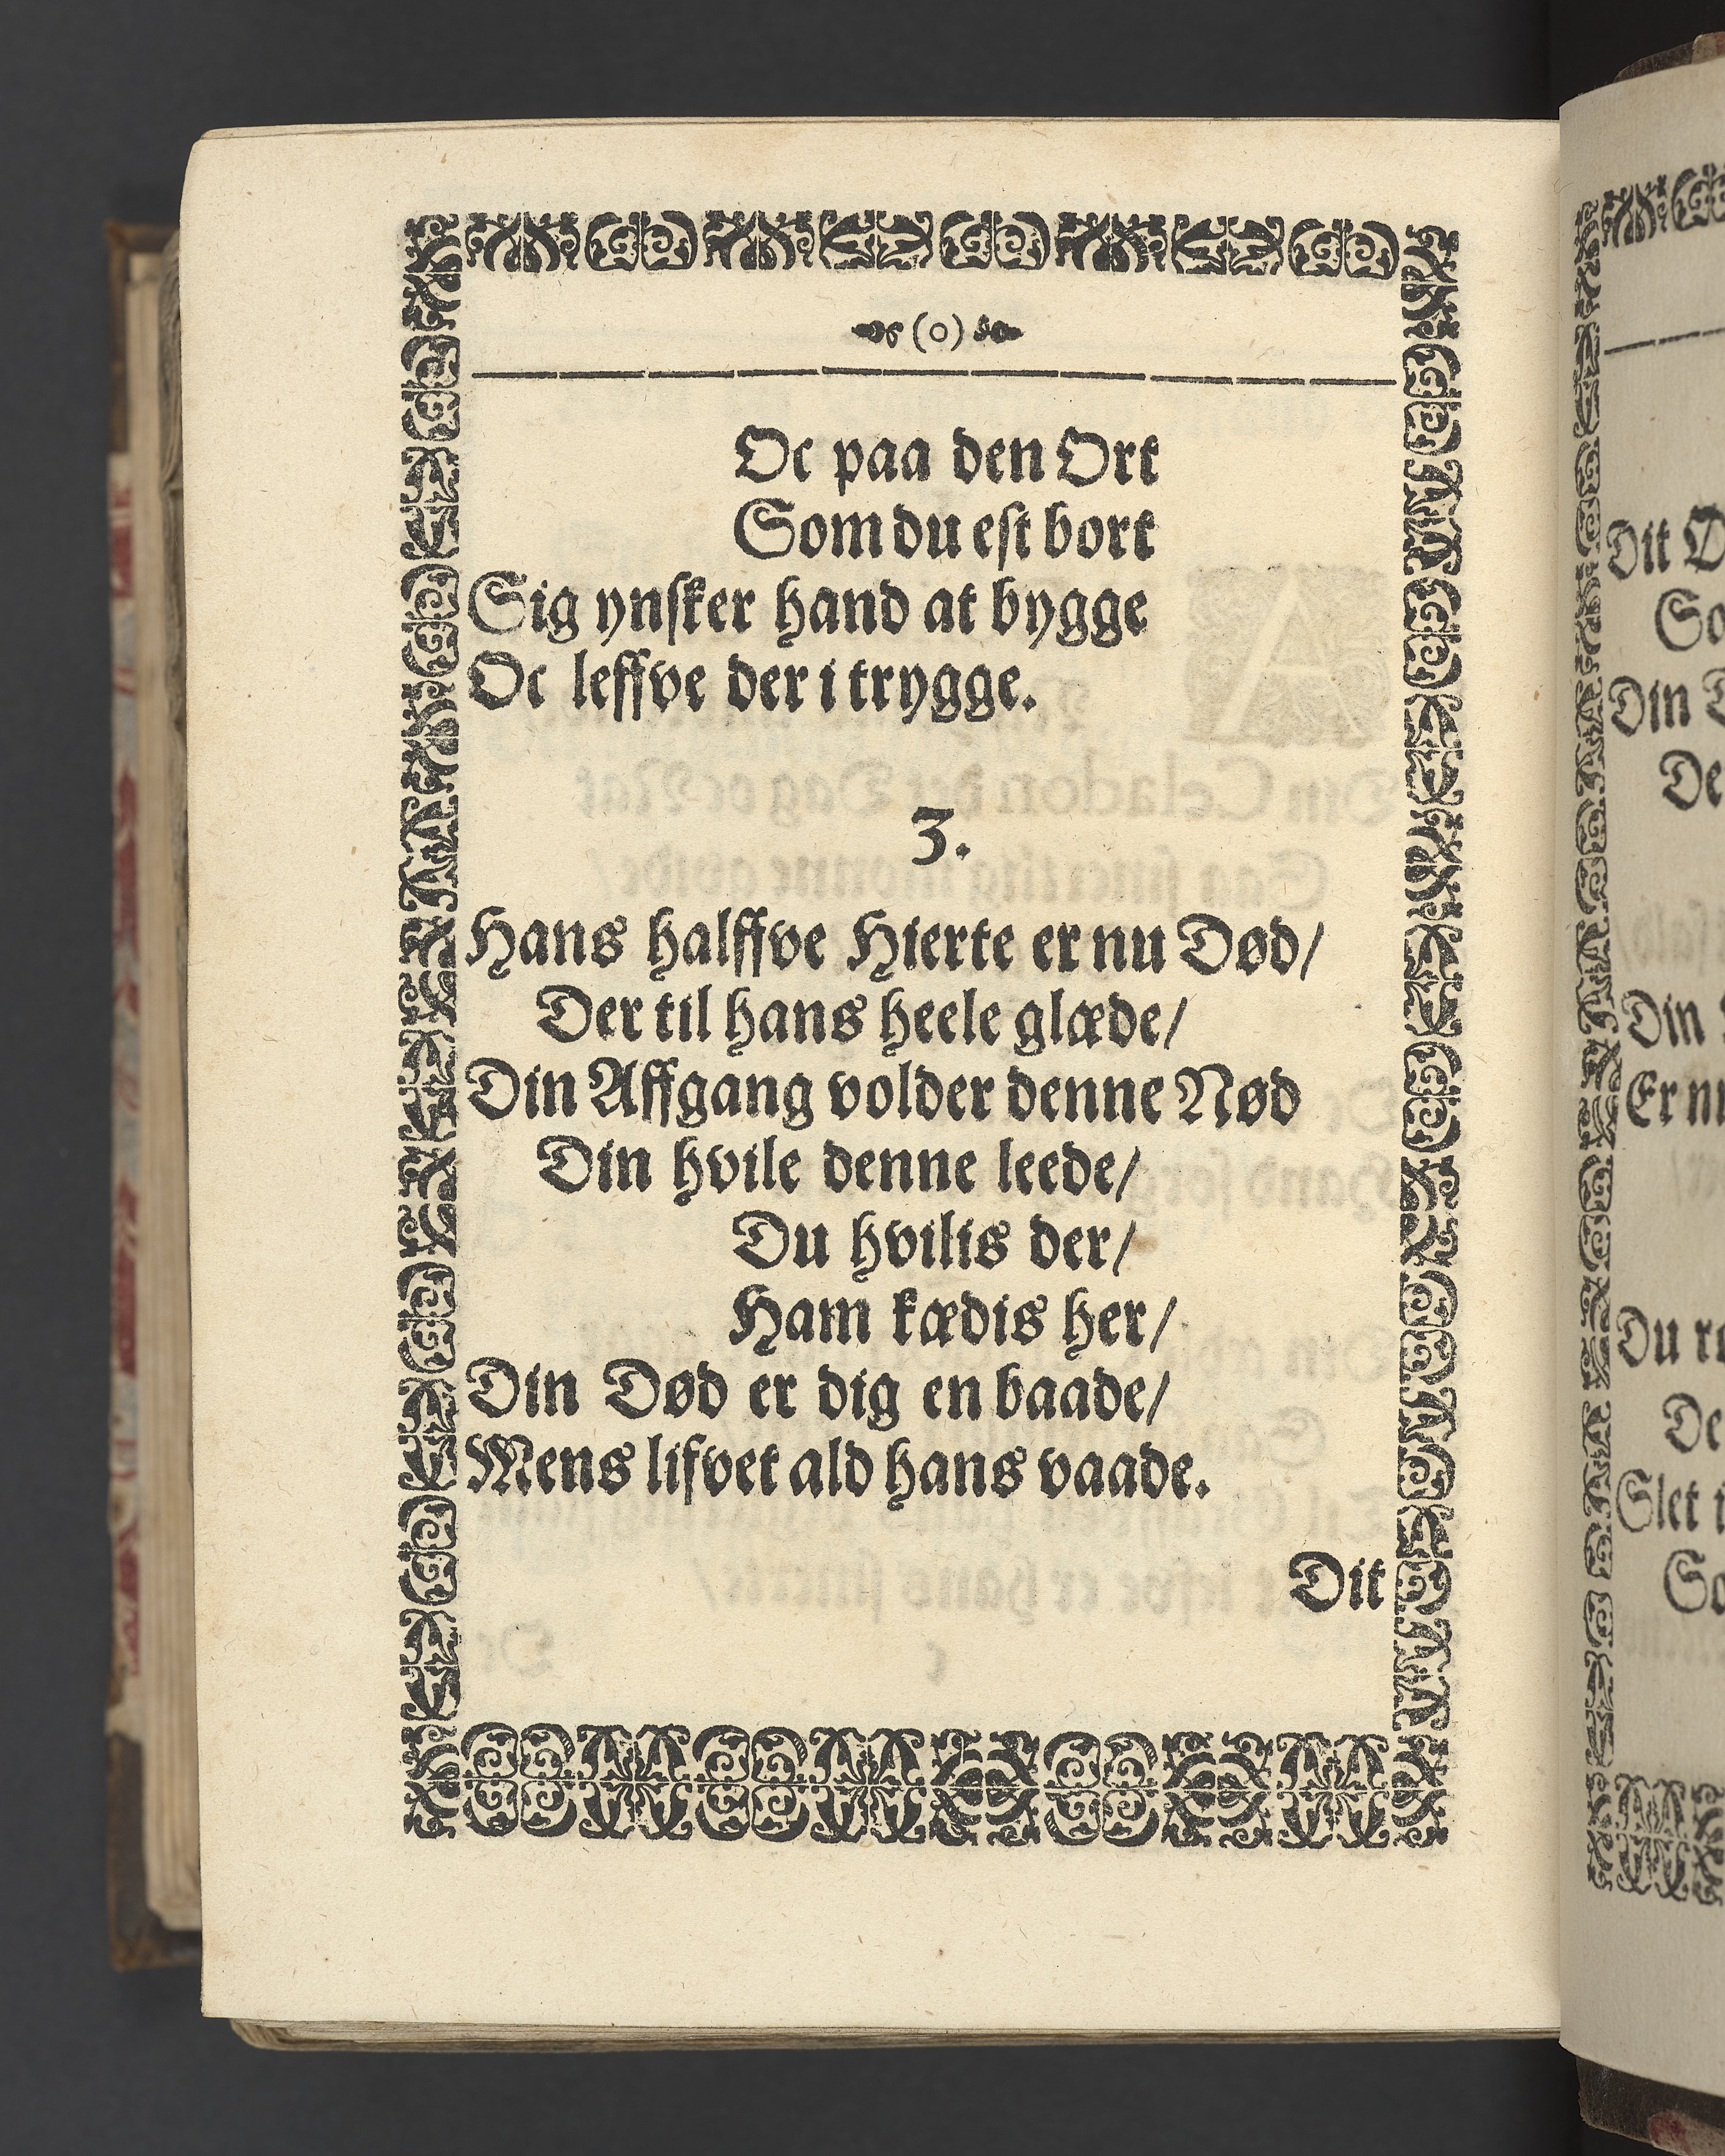 (o)
Oc paa den Ort
Som du est bort
Sig ynsker hand at bygge
Oc leffve der i trygge.
3.
Hans halffve Hierte er nu Død/
Der til hans heele glæde/
Din Affgang volder denne Nød
Din hvile denne leede/
Du hvilis der/
Ham kædis her/
Din Død er dig en baade/
Mens lifvet ald hans vaade.
Dit
Dit
Din
De
Din
Er
Du
De
Slet